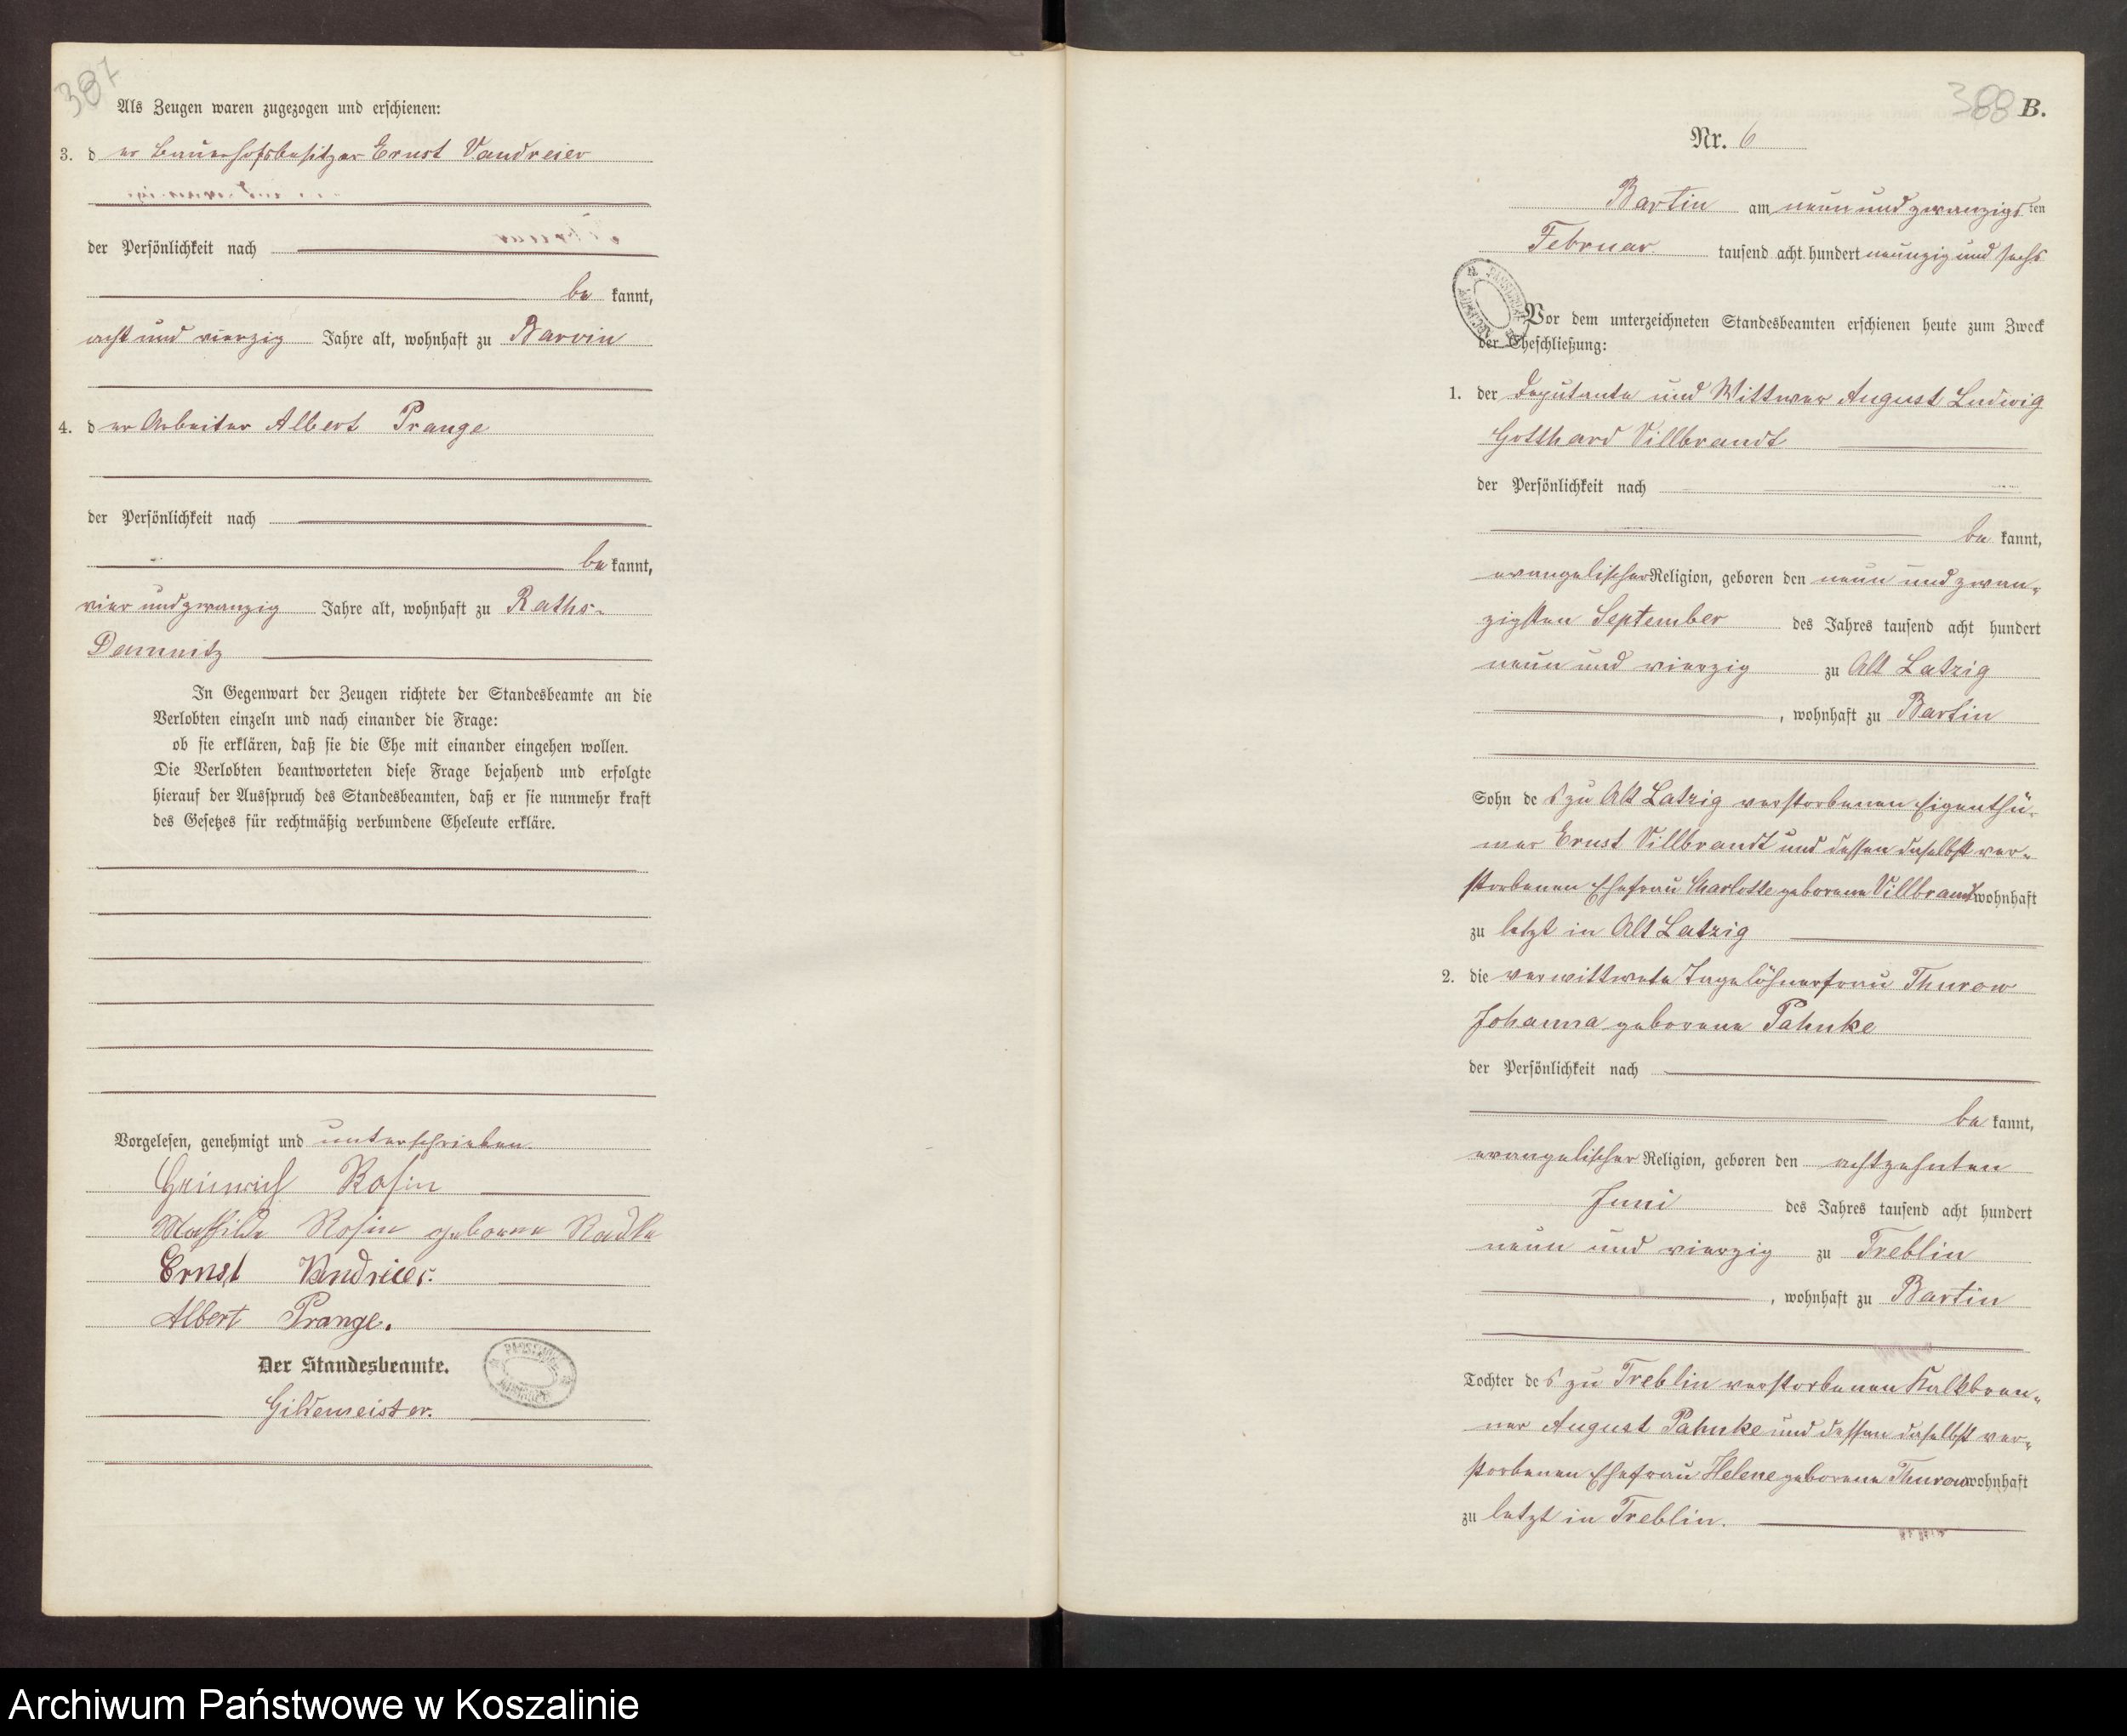 387
Als Zeugen waren zugezogen und erschienen:
3. der Bauerhofsbesitzer Ernst Vandreier
der Persönlichkeit nach
bekannt,
acht und vierzig Jahre alt, wohnhaft zu Barvin
4. der Arbeiter Albert Prange
der Persönlichkeit nach
bekannt,
vier und zwanzig Jahre alt, wohnhaft zu Raths-
Damnitz
In Gegenwart der Zeugen richtete der Standesbeamte an die
Verlobten einzeln und nach einander die Frage:
ob sie erklären, daß sie die Ehe mit einander eingehen wollen.
Die Verlobten beantworteten diese Frage bejahend und erfolgte
hierauf der Ausspruch des Standesbeamten, daß er sie nunmehr kraft
des Gesetzes für rechtmäßig verbundene Eheleute erkläre.
Vorgelesen, genehmigt und unterschrieben.
Heinrich Rosin
Mathilde Rosin geborne Radke
Ernst Vandreier.
Albert Prange.
Der Standesbeamte.
Gildemeister.
388 B.
Nr. 6
Bartin am neun und zwanzigsten
Februar tausend acht hundert neunzig und sechs
Vor dem unterzeichneten Standesbeamten erschienen heute zum Zweck
der Eheschließung:
1. der Deputante und Wittwer August Ludwig
Gotthard Villbrandt
der Persönlichkeit nach
bekannt,
evangelischer Religion, geboren den neun und zwan-
zigsten September des Jahres tausend acht hundert
neun und vierzig zu Alt Latzig
, wohnhaft zu Bartin
Sohn des zu Alt Latzig verstorbenen Eigenthü-
mer Ernst Villbrandt und dessen daselbst ver-
storbenen Ehefrau Charlotte geborene Villbrandt wohnhaft
zu letzt in Alt Latzig
2. die verwittwete Tagelöhnerfrau Thurow
Johanna geborene Pahnke
der Persönlichkeit nach
bekannt,
evangelischer Religion, geboren den achtzehnten
Juni des Jahres tausend acht hundert
neun und vierzig zu Treblin
, wohnhaft zu Bartin
Tochter des zu Treblin verstorbenen Kalkbren-
ner August Pahnke und dessen daselbst ver-
storbenen Ehefrau Helene geborene Thurow wohnhaft
zu letzt in Treblin.
Archiwum Państwowe w Koszalinie